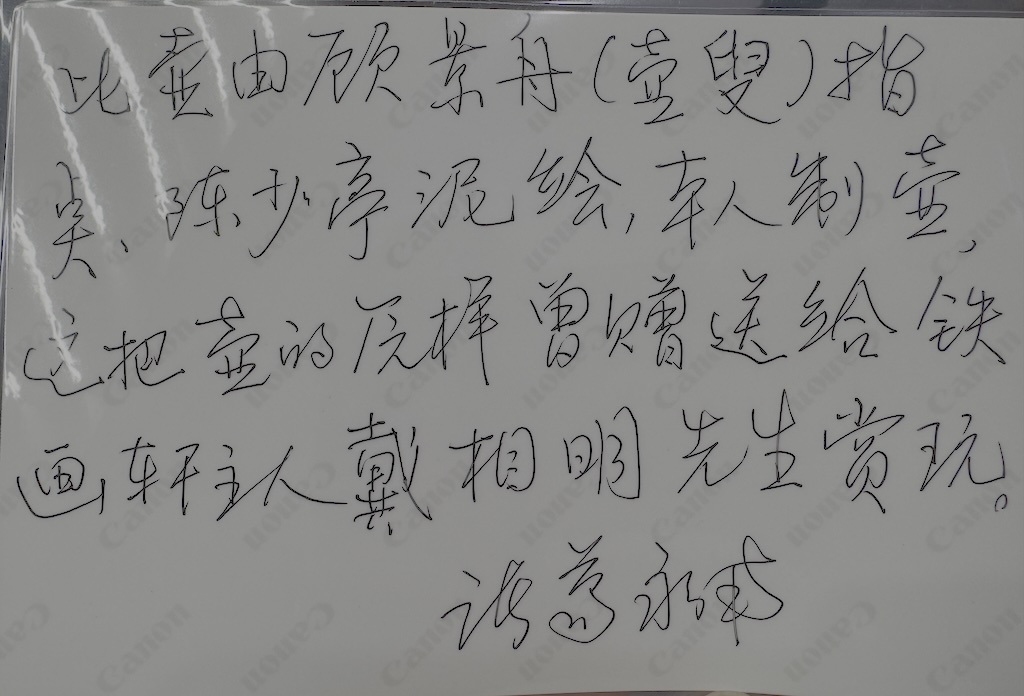 此壶由顾景舟(壶叟)指
奌、陈少亭泥绘,本人制壶,
这把壶的原样曾赠送给铁
画轩主人戴相明先生赏玩。